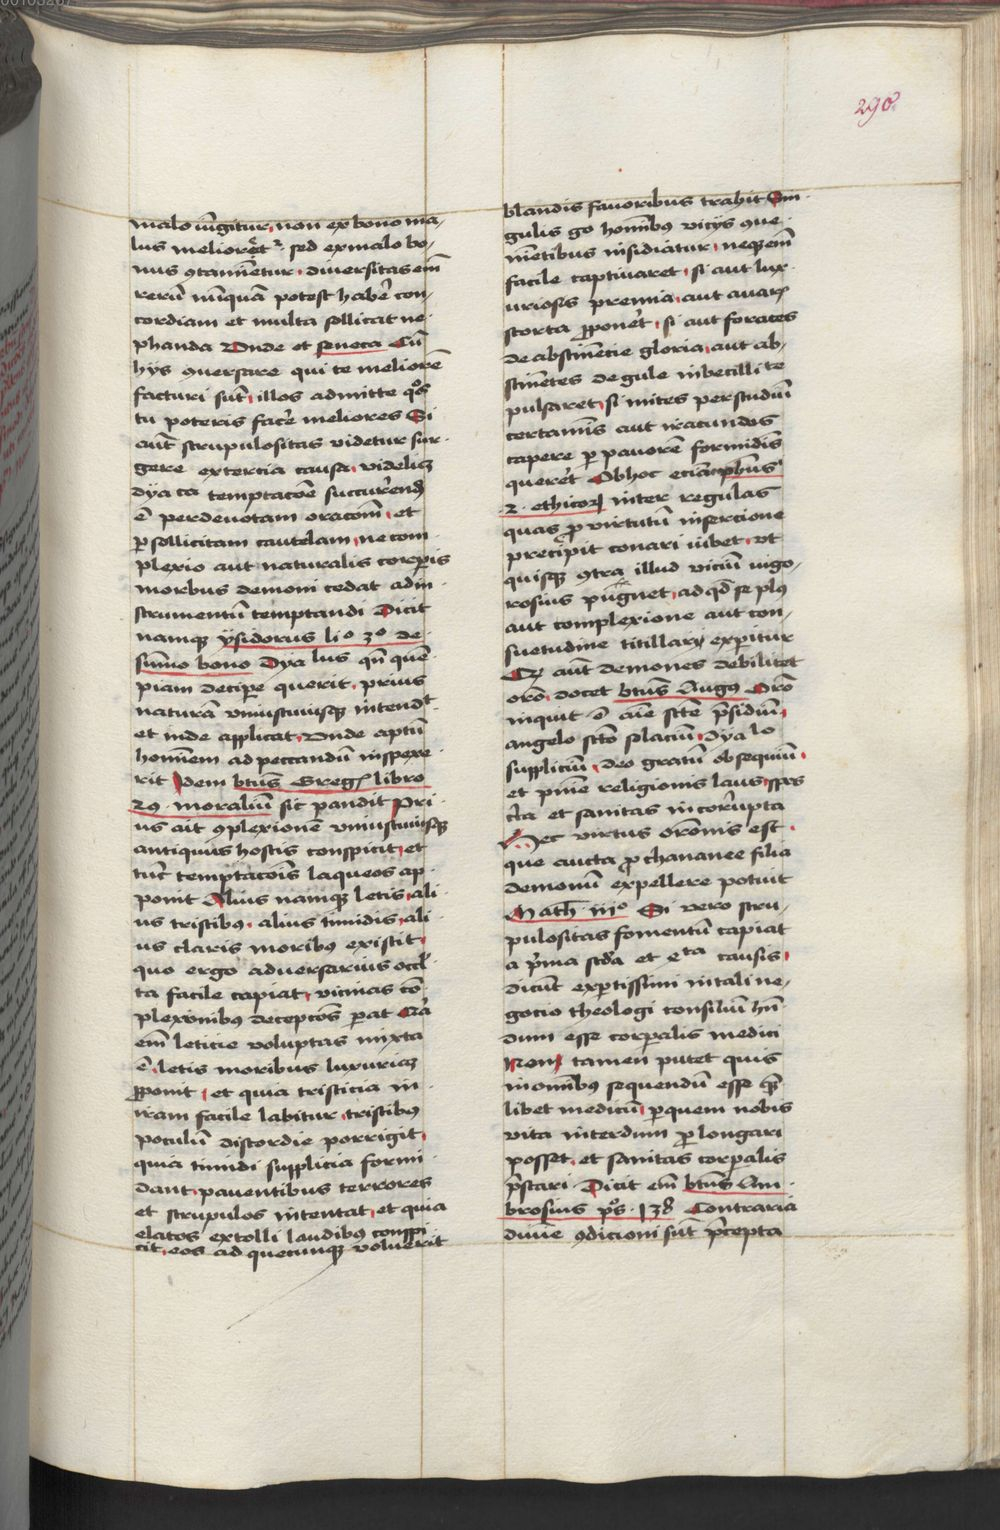 290
malo iūgitur, non ex bono ma,
lus melioret², sed ex malo bo,
nus 9tamīetur. diversitas em̄
rerū nūquā potest habēr con,
cordiam et multa sollicitat ne,
phanda Unde et seneca Cū
hys 9versare qui te meliorē
facturi sūt, illos admitte q̄os
tu poteris facēr meliores Si
aūt scrupulositas videtur sur,
gere ex tercia causa, videlicȝ
dya ca temptacōe succurrend
ē per devotam oracōm, et
p sollicitam cautelam, ne com,
plexio aut naturalis corpis
morbus demoni cedat ad in,
strumentū temptandi Dicit
namqȝ ysidorus li° 3° de
sūmo bono Dya lus qn̄ quē
piam decipe querit, prius
naturā vniuscuiusqȝ intendt
et inde applicat, Unde aptū
hominem ad peccandū inspexe
rit Idem bt̄us Greg libro
29. moraliū sic pandit Pri
us ait 9plexionē vniuscuiusqȝ
antiquus hostis conspicit, et
tūc temptacōis laqueos ap,
ponit Alius namqȝ letis, ali
us tristibȝ, alius timidis, ali
us claris moribȝ existit,
quo ergo adversarius occl̄
ta facile capiat, vicinas cō
plexionibȝ decepcōs pat Cr̄a
em̄ leticie voluptas mixta
ē, letis moribus luxuriaȝ
pponit, et quia tristicia in
iram facile labitur, tristibȝ
poculū discordie porrigit,
quia timidi supplicia formi
dant, paventibus terrores
et scrupulos intentat, et quia
elatos extolli laudibȝ conspi
cit, eos ad quecunqȝ voluerit
blandis favoribus trahit Sin
gulis go homībȝ vicys 9ue,
niētibus insidiatur, neqȝ em̄
facile captivaret, si aut lux,
uriosis premia, aut avar
scorta pponēt, si aut foraces
de abstinēcie gloria, aut ab,
stinētes de gule inbecillite
pulsaret, si mites per studiū
certamīs aut iracundos
capere p pavorē formidīs
querēt Ob hoc eciā ph̄us
2. ethicoȝ inter regulas
quas p virtutū insercione
precipit conari iubet, ut
quisqȝ 9tra illud viciū vigo,
rosius pugnet, ad qd̄ se plȝ
aut complexione aut con,
suetudine titillar expitur
Qȝ aūt demones debilitet
orō, docet bt̄us Augȝ Orō
inquit ē aīe scte p̄sidiū,
angelo scto solaciū, dya lo
suppliciū, deo gratū obsequiū,
et pnīe religionis laus, spes
c̄ta et sanitas incorrupta
Hec virtus orōnis est,
que cuncta p chananee filia
demonū expellere potuit
Math iii° Si vero scru,
pulositas fomentū capiat
a p̄ma scd̄a et 4ta causis,
dicūt expertissimi in tali ne,
gocio theologi consiliū hn̄
dum esse corpalis medici
Non tamen putet quis
in omībȝ sequendū esse qm̄
libet medicū, p quem nobis
vita interdum plongari
posset, et sanitas corpalis
p̄stari Dicit em̄ bt̄us Am,
brosius ps. 138 Contraria
divīe 9dicioni sūt p̄cepta